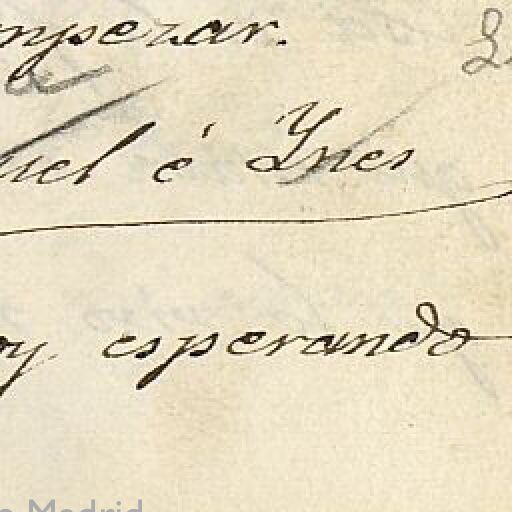 mpezar.
uel é Ynes
oy esperando
Madrid